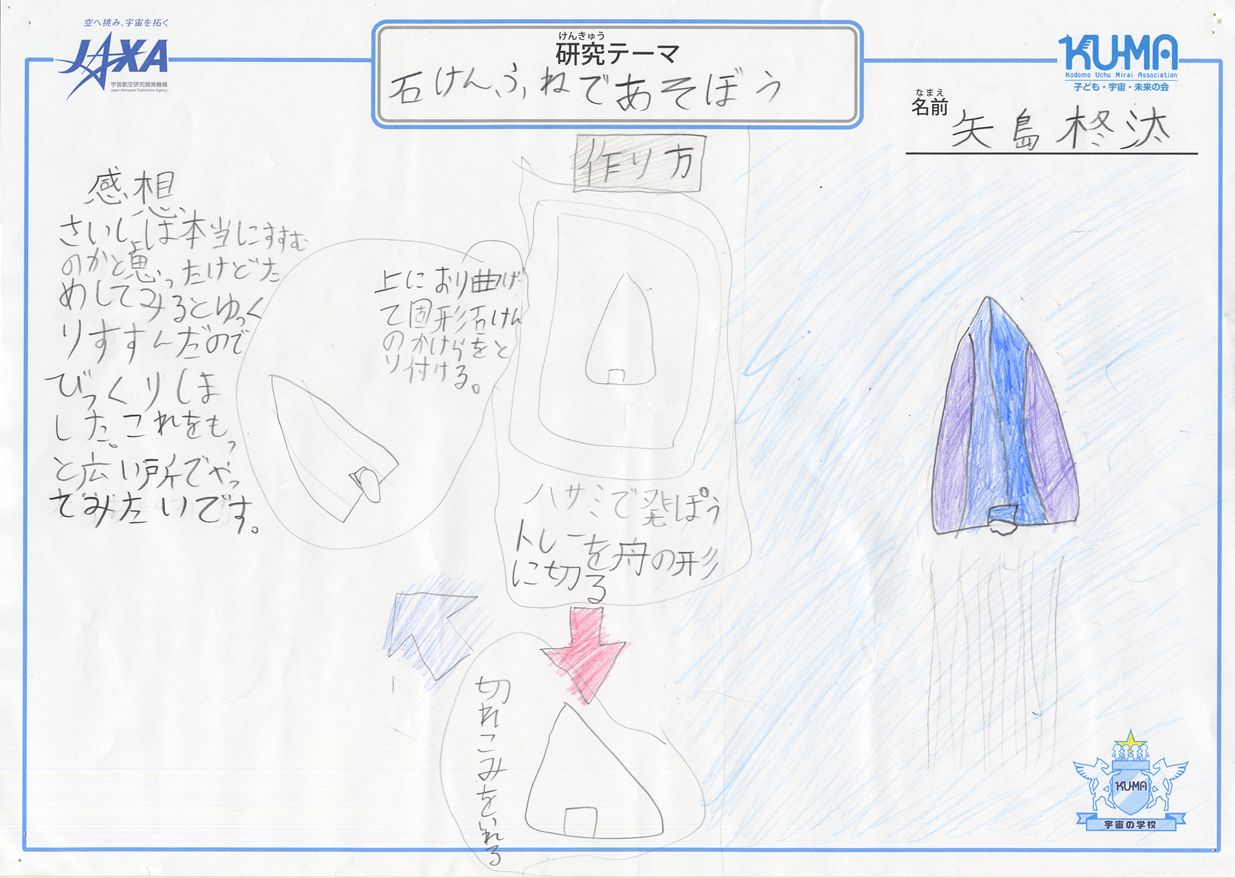 空へ挑み、宇宙を拓く
JAXA
宇宙航空研究開発機構
Japan Aerospace Exploration Agency
けんきゅう
研究テーマ
石けんふねであそぼう
KU-MA
Kodomo Uchu Mirai Association
子ども・宇宙・未来の会
なまえ
名前
矢島柊汰
作り方
ハサミで発ぽう
トレーを舟の形
に切る
切れこみをいれる
上におり曲げ
て固形石けん
のかけらをと
り付ける。
感想
さいしょは本当にすすむ
のかと思ったけどた
めしてみるとゆっく
りすすんだので
びっくりしま
した。これをもっ
と広い所でやっ
てみたいです。
KU-MA
宇宙の学校